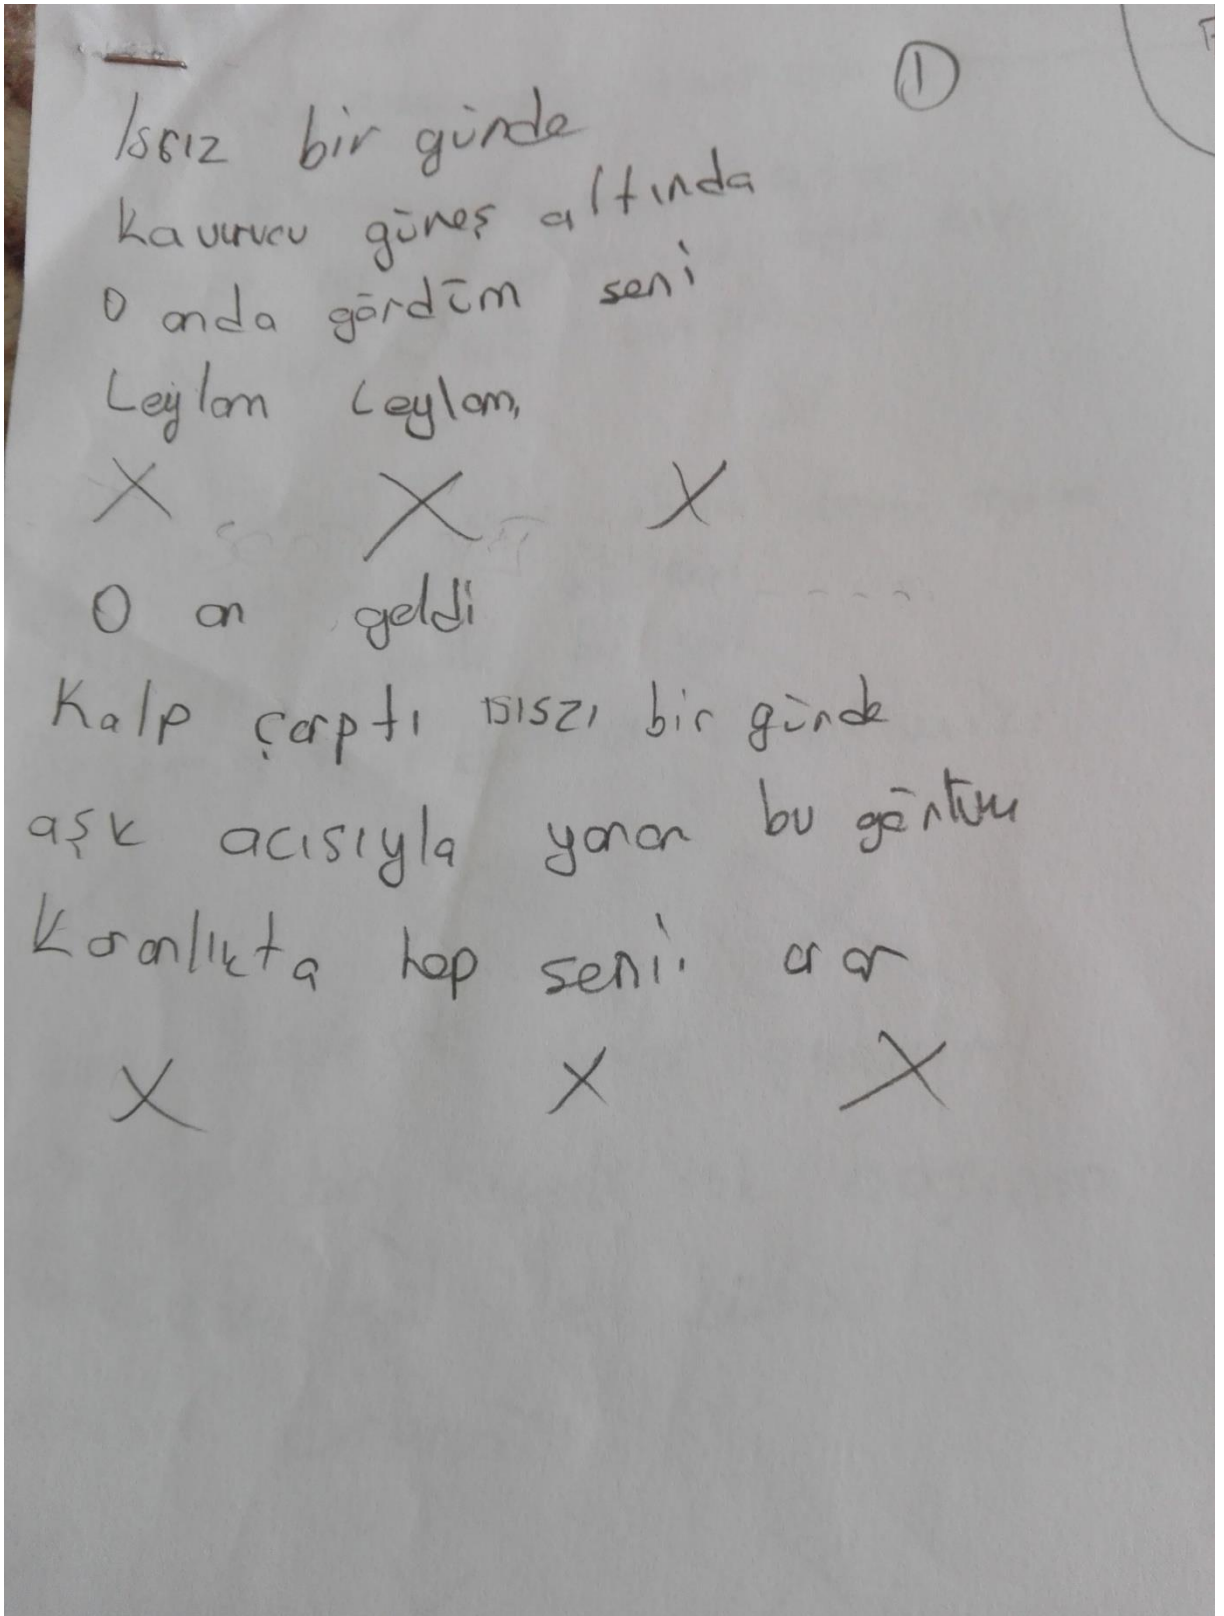 ①
Issız bir günde
Kavurucu güneş altında
O anda gördüm seni
Leylam Leylam,
X X X
O an geldi
Kalp çarptı ısıszı bir günde
aşk acısıyla yanan bu gönlüm
Karanlıkta hep seni arar
X X X